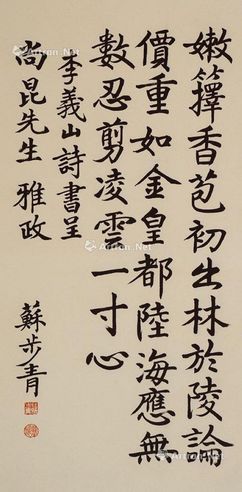 嫩籜香苞初出林於陵論
價重如金皇都陸海應無
數忍剪凌雲一寸心
李義山詩書呈
尚昆先生 雅政
蘇步青